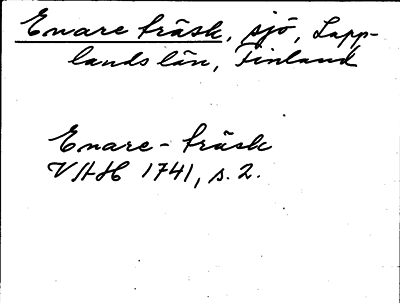 Enare träsk, sjö, Lapp-
lands län, Finland
Enare-träsk
VAH 1741, s. 2.